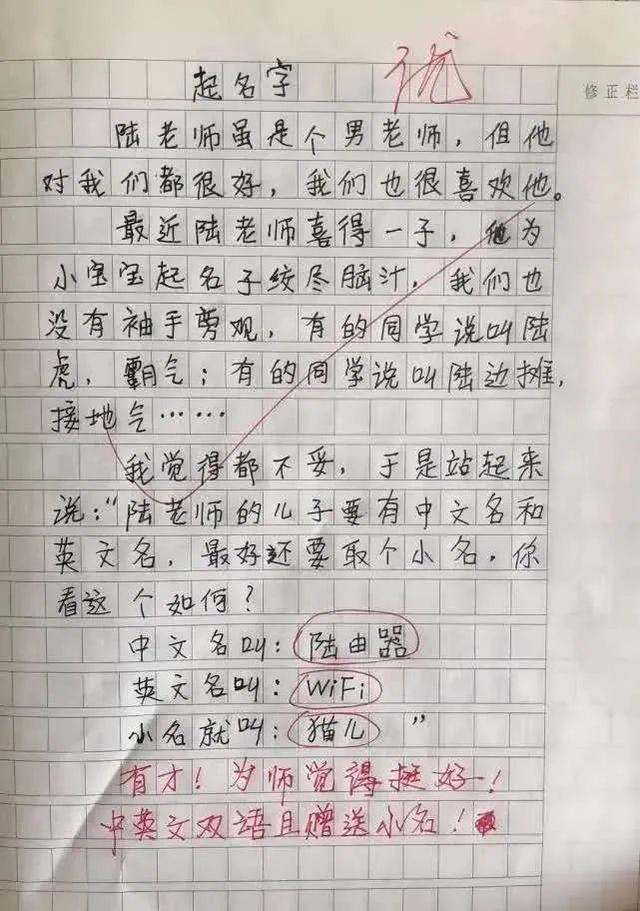 起名字
优
修正栏
陆老师虽是个男老师，但他
对我们都很好，我们也很喜欢他。
最近陆老师喜得一子，他为
小宝宝起名子绞尽脑汁，我们也
没有袖手剪观，有的同学说叫陆
虎，霸气；有的同学说叫陆边摊，
接地气……
我觉得都不妥，于是站起来
说：“陆老师的儿子要有中文名和
英文名，最好还要取个小名，你
看这个如何？
中文名叫：陆由器
英文名叫：WiFi
小名就叫：猫儿”
有才！为师觉得挺好！
中英文双语且赠送小名！